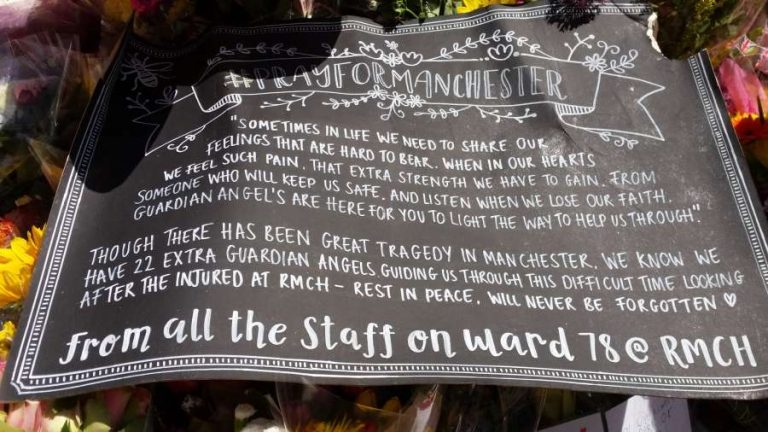 #PRAYFORMANCHESTER
"SOMETIMES IN LIFE WE NEED TO SHARE OUR
FEELINGS THAT ARE HARD TO BEAR. WHEN IN OUR HEARTS
WE FEEL SUCH PAIN, THAT EXTRA STRENGTH WE HAVE TO GAIN. FROM
SOMEONE WHO WILL KEEP US SAFE. AND LISTEN WHEN WE LOSE OUR FAITH.
GUARDIAN ANGEL'S ARE HERE FOR YOU TO LIGHT THE WAY TO HELP US THROUGH".
THOUGH THERE HAS BEEN GREAT TRAGEDY IN MANCHESTER, WE KNOW WE
HAVE 22 EXTRA GUARDIAN ANGELS GUIDING US THROUGH THIS DIFFICULT TIME LOOKING
AFTER THE INJURED AT RMCH - REST IN PEACE, WILL NEVER BE FORGOTTEN ♡
From all the Staff on Ward 78 @ RMCH